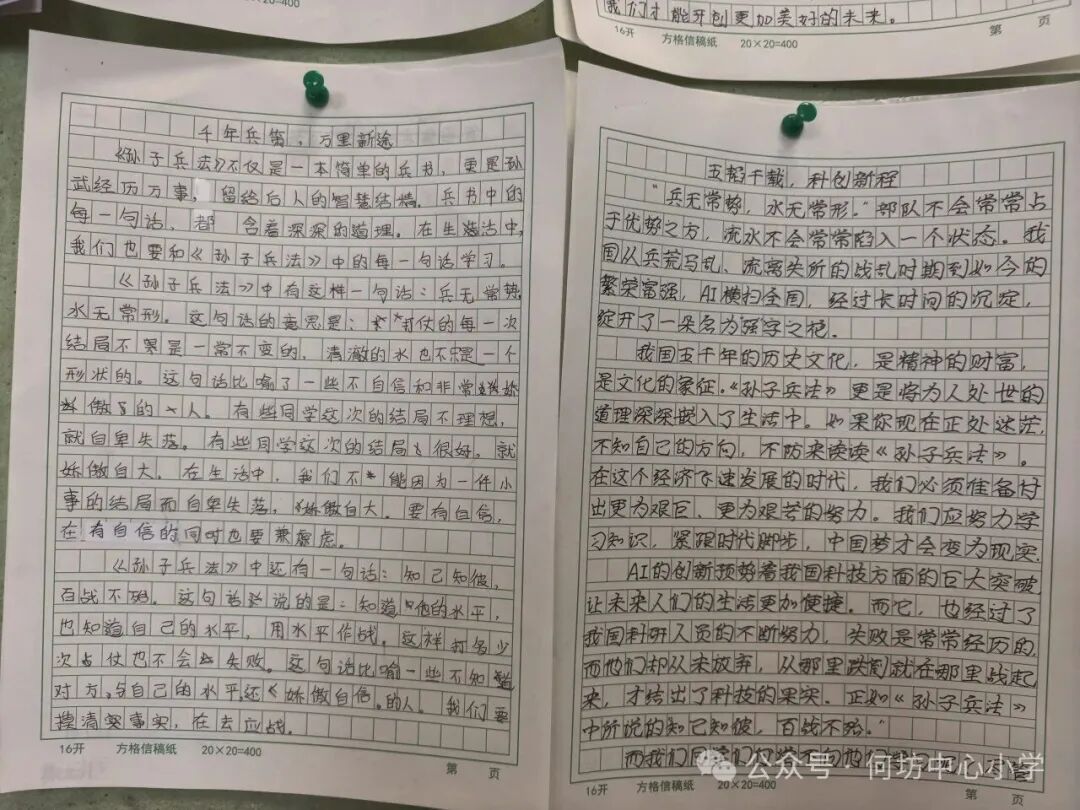 16开 方格信稿纸 20×20=400
我们才能开创更加美好的未来。
16开 方格信稿纸 20×20=400 第 页
千年兵策，万里新途
《孙子兵法》不仅是一本简单的兵书，更是孙
武经历万事，留给后人的智慧结精。兵书中的
每一句话，都含着深深的道理。在生活中，
我们也要和《孙子兵法》中的每一句话学习。
《孙子兵法》中有这样一句话：兵无常势，
水无常形。这句话的意思是：打仗的每一次
结局不是一常不变的，清澈的水也不只是一个
形状的。这句话比喻了一些不自信和非常娇
傲的人。有些同学这次的结局不理想，
就自卑失落。有些同学这次的结局很好，就
娇傲自大。在生活中，我们不能因为一件小
事的结局而自卑失落，娇傲自大。要有自信，
在有自信的同时也要兼虑。
《孙子兵法》中还有一句话：知己知彼，
百战不殆。这句话说的是：知道他的水平，
也知道自己的水平，用水平作战，这样打多少
次仗也不会失败。这句话比喻一些不知道
对方与自己的水平，还娇傲自信的人。我们要
摸清实事实，在去应战。
16开 方格信稿纸 20×20=400
第 页
五韬千载，科创新程
“兵无常势，水无常形。”部队不会常常占
于优势之方，流水不会常常陷入一个状态。我
国从兵荒马乱、流离失所的战乱时期到如今的
繁荣富强，AI横扫全国，经过长时间的沉淀，
绽开了一朵名为“强”字之花。
我国五千年的历史文化，是精神的财富，
是文化的象征。《孙子兵法》更是将为人处世的
道理深深嵌入了生活中。如果你现在正处迷茫，
不知自己的方向，不防来读读《孙子兵法》。
在这个经济飞速发展的时代，我们必须准备付
出更为艰巨、更为艰苦的努力。我们应努力学
习知识，紧跟时代脚步，中国梦才会变为现实。
AI的创新预势着我国科技方面的巨大突破，
让未来人们的生活更加便捷。而它，也经过了
我国科研人员的不断努力，失败是常常经历的，
而他们却从未放弃，从那里跌倒就在那里战起
来，才结出了科技的果实。正如《孙子兵法》
中所说的知己知彼，百战不殆。”
而我们同学们
16开 方格信稿纸 20×20=400
第 页
公众号 何坊中心小学